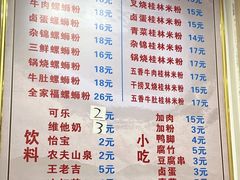 牛肉螺蛳粉 16元
卤蛋螺蛳粉
杂锦螺蛳粉 18元
三鲜螺蛳粉 16元
锅烧螺蛳粉 18元
牛肚螺蛳粉 18元
全家福螺蛳粉 26元
叉烧桂林米粉
卤蛋桂林米粉
青菜桂林米粉 15元
杂锦桂林米粉
锅烧桂林米粉 17元
五香牛肉桂林米粉
干捞叉烧桂林米粉 15元
五香牛肚桂林米粉 17元
饮料
可乐 2元
维他奶 3元
怡宝 2元
农夫山泉 2元
王老吉 5元
小吃
加肉 5元
加粉 3元
鸭脚 4元
腐竹 5元
豆腐串 5元
卤蛋